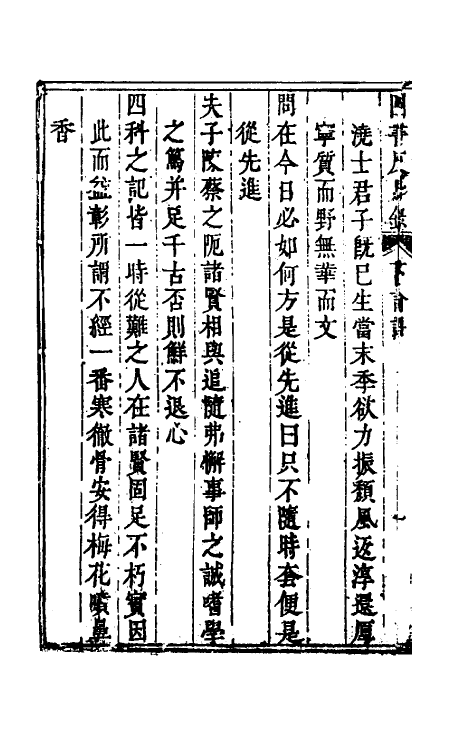 四書反身錄 下論語 一
澆士君子旣已生當末季欲力振頹風返淳還厚
寧質而野無華而文
問在今日必如何方是從先進曰只不隨時套便是
從先進
夫子陳蔡之阨諸賢相與追隨弗懈事師之誠嗜學
之篤并足千古否則鮮不退心
四科之記皆一時從難之人在諸賢固足不朽實因
此而益彰所謂不經一番寒徹骨安得梅花噴鼻
香